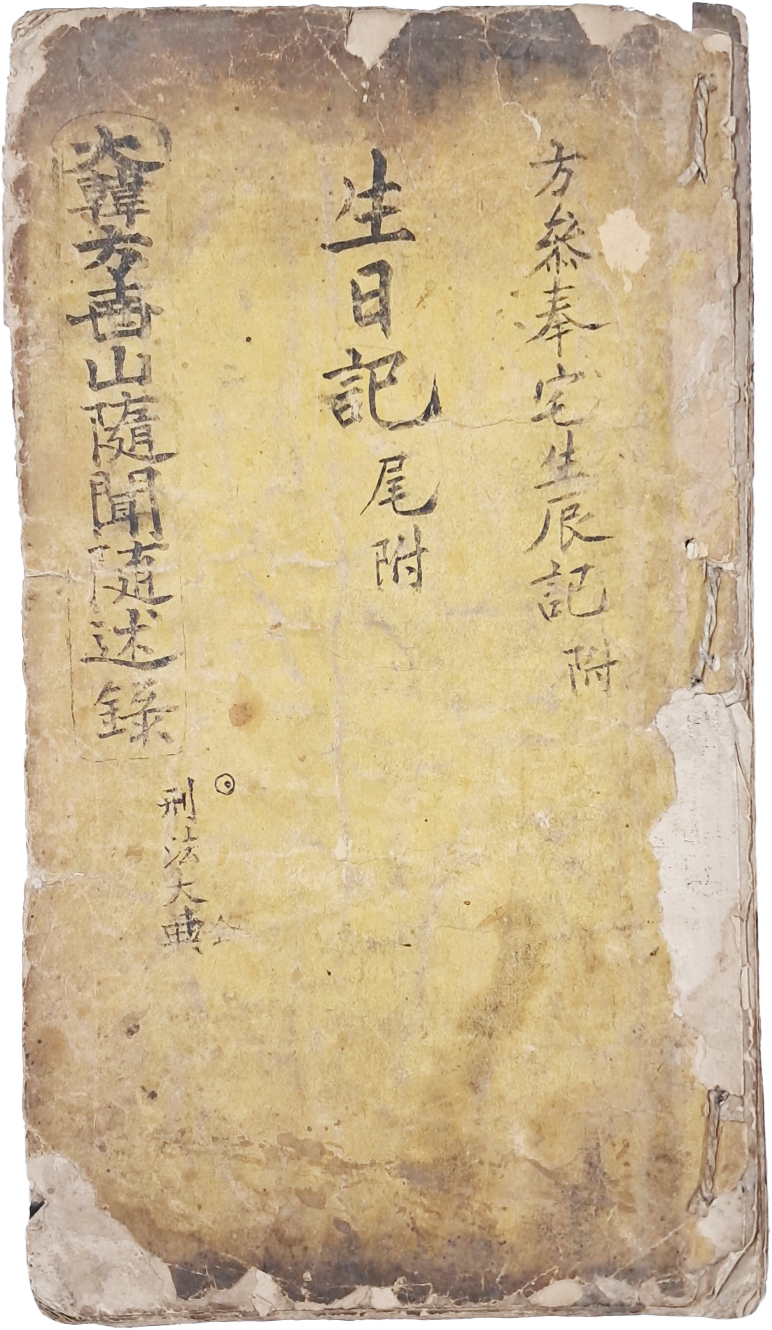 方叅奉宅生辰記附
生日記尾附
刑法大典
大韓方山隨聞隨述錄